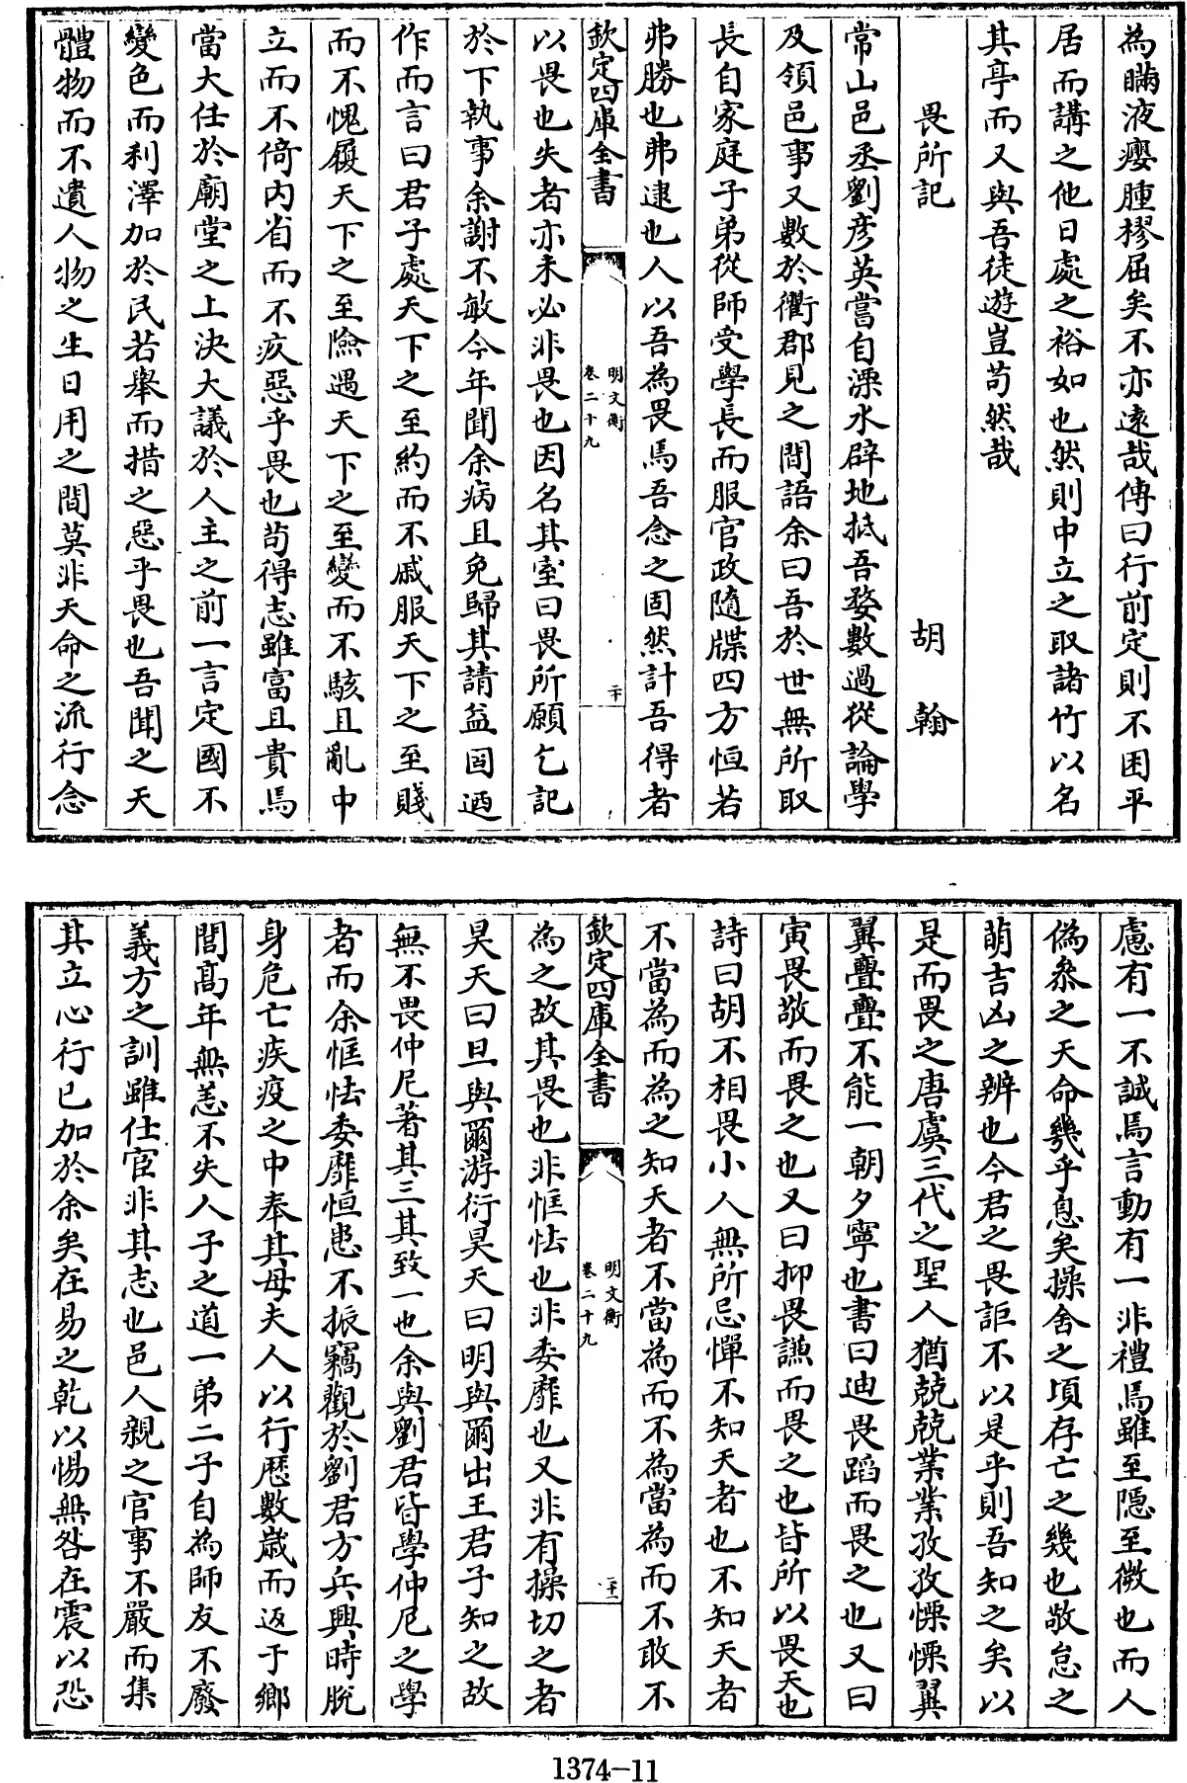 為瞞液癭腫樛屈矣不亦遠哉傳曰行前定則不困平
居而講之他日處之裕如也然則中立之取諸竹以名
其亭而又與吾徒遊豈苟然哉
畏所記 胡翰
常山邑丞劉彦英嘗自溧水辟地抵吾婺數過從論學
及領邑事又數於衢郡見之間語余曰吾於世無所取
長自家庭子弟從師受學長而服官政隨牒四方恒若
弗勝也弗逮也人以吾為畏焉吾念之固然計吾得者
欽定四庫全書
明文衡
卷二十九
二十
以畏也失者亦未必非畏也因名其室曰畏所願乞記
於下執事余謝不敏今年聞余病且免歸其請益固迺
作而言曰君子處天下之至約而不戚服天下之至賤
而不愧履天下之至險遇天下之至變而不駭且亂中
立而不倚内省而不疚惡乎畏也苟得志雖富且貴焉
當大任於廟堂之上決大議於人主之前一言定國不
變色而利澤加於民若舉而措之惡乎畏也吾聞之天
體物而不遺人物之生日用之間莫非天命之流行念
慮有一不誠焉言動有一非禮焉雖至隱至微也而人
偽叅之天命幾乎息矣操舍之頃存亡之幾也敬怠之
萌吉凶之辨也今君之畏詎不以是乎則吾知之矣以
是而畏之唐虞三代之聖人猶兢兢業業孜孜慄慄翼
翼亹亹不能一朝夕寧也書曰迪畏蹈而畏之也又曰
寅畏敬而畏之也又曰抑畏謙而畏之也皆所以畏天也
詩曰胡不相畏小人無所忌憚不知天者也不知天者
不當為而為之知天者不當為而不為當為而不敢不
欽定四庫全書
明文衡
卷二十九
二十一
為之故其畏也非恇怯也非委靡也又非有操切之者
昊天曰旦與爾游衍昊天曰明與爾出王君子知之故
無不畏仲尼著其三其致一也余與劉君皆學仲尼之學
者而余恇怯委靡恒患不振竊觀於劉君方兵興時脱
身危亡疾疫之中奉其母夫人以行歴數歳而返于鄉
閭髙年無恙不失人子之道一弟二子自為師友不廢
義方之訓雖仕宦非其志也邑人親之官事不嚴而集
其立心行已加於余矣在易之乾以惕無咎在震以恐
1374-11